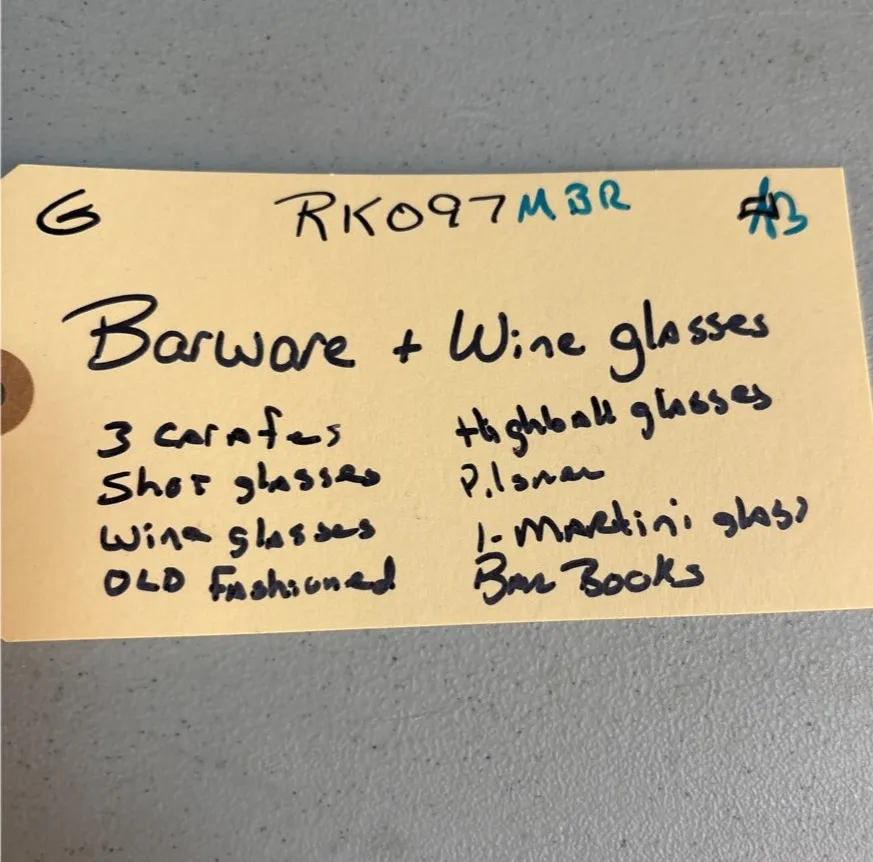 G RK097 MBR
Barware + Wine glasses
3 carafes Highball glasses
Shot glasses Pilsner
Wine glasses 1-Martini glass
OLD Fashioned Bar Books